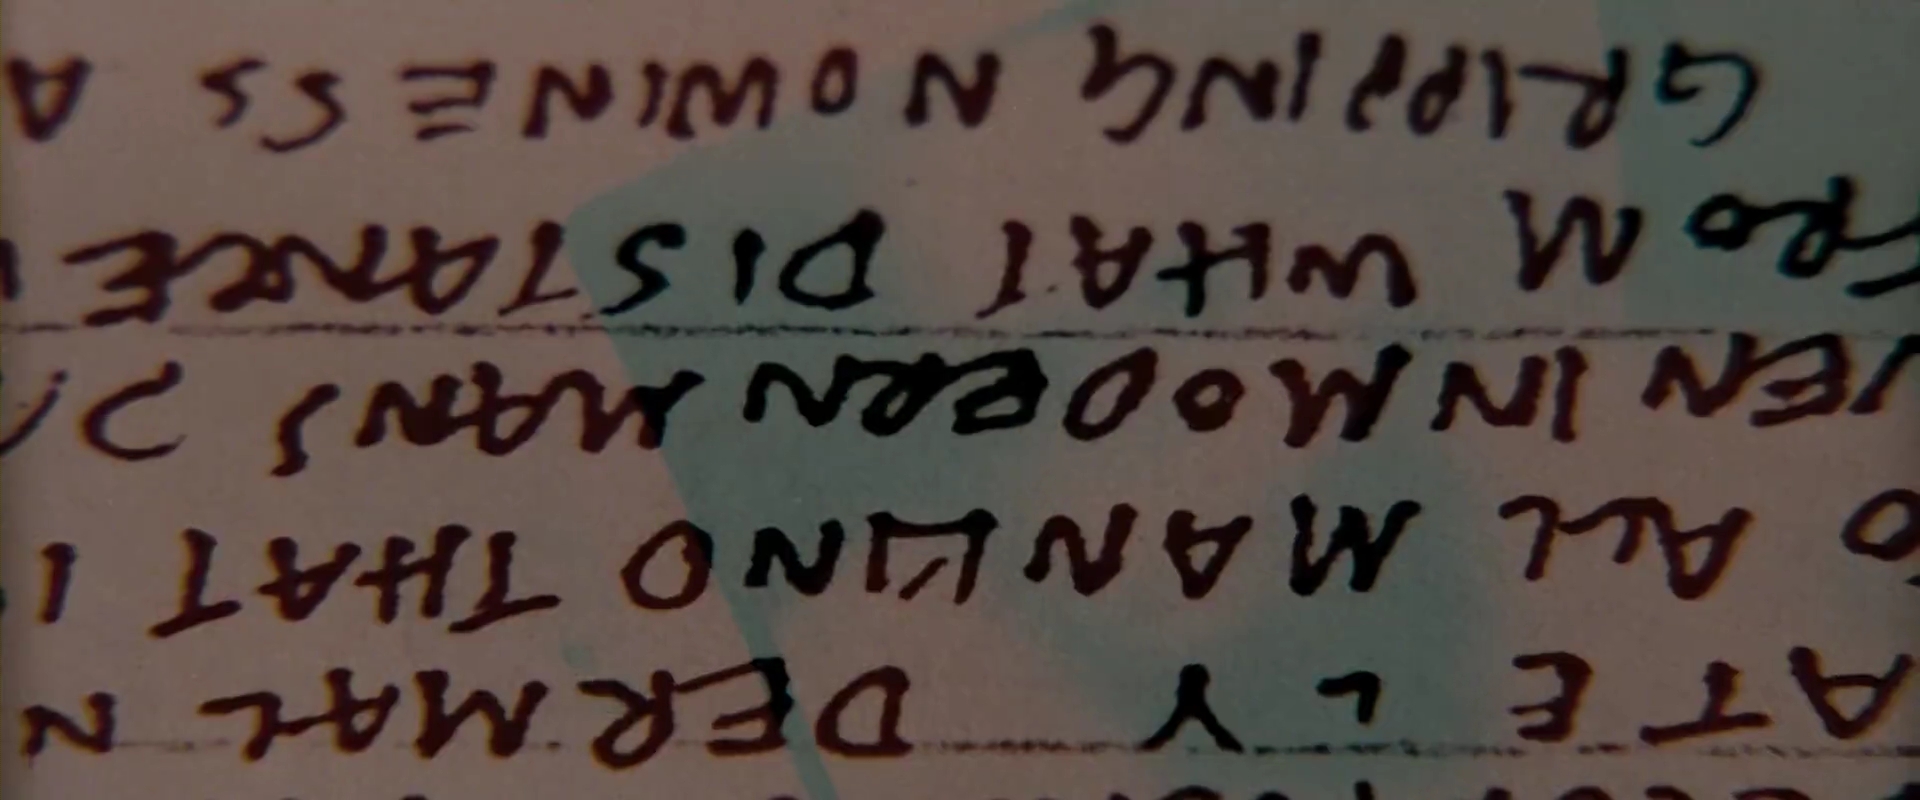 ATELY DERMAL N
ALL MANKIND THAT I
EN IN MODERN MANS
FROM WHAT DISTANCE
GRIPPING NOWINESS A